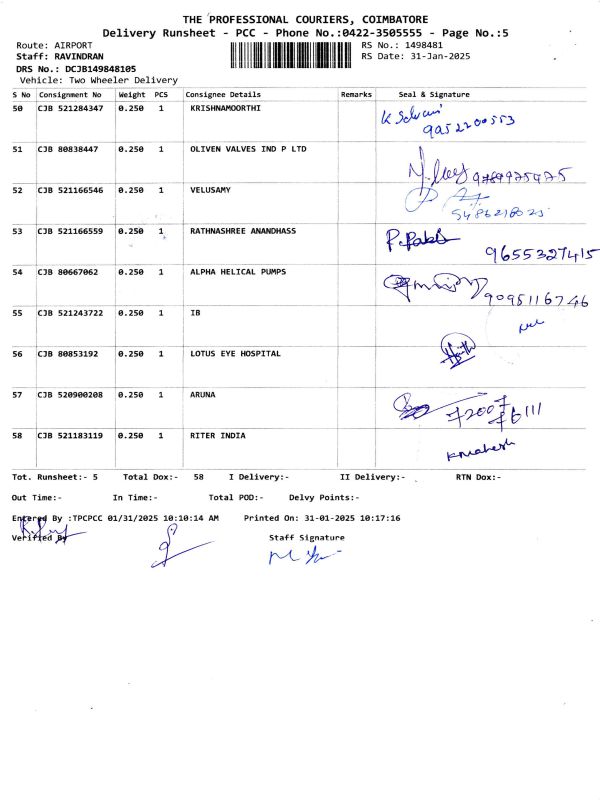 THE PROFESSIONAL COURIERS, COIMBATORE
Delivery Runsheet - PCC - Phone No.:0422-3505555 - Page No.:5
Route: AIRPORT RS No.: 1498481
Staff: RAVINDRAN RS Date: 31-Jan-2025
DRS No.: DCJB149848105
Vehicle: Two Wheeler Delivery
S No Consignment No Weight PCS Consignee Details Remarks Seal & Signature
50 CJB 521284347 0.250 1 KRISHNAMOORTHI K Selvani
9952200553
51 CJB 80838447 0.250 1 OLIVEN VALVES IND P LTD
9789975475
52 CJB 521166546 0.250 1 VELUSAMY
53 CJB 521166559 0.250 1 RATHNASHREE ANANDHASS
9655327415
54 CJB 80667062 0.250 1 ALPHA HELICAL PUMPS
9095116746
55 CJB 521243722 0.250 1 IB
56 CJB 80853192 0.250 1 LOTUS EYE HOSPITAL
57 CJB 520900208 0.250 1 ARUNA
72007
76111
58 CJB 521183119 0.250 1 RITER INDIA
K.Mahesh
Tot. Runsheet:- 5 Total Dox:- 58 I Delivery:- II Delivery:- RTN Dox:-
Out Time:- In Time:- Total POD:- Delvy Points:-
Entered By :TPCPCC 01/31/2025 10:10:14 AM Printed On: 31-01-2025 10:17:16
Verified By Staff Signature